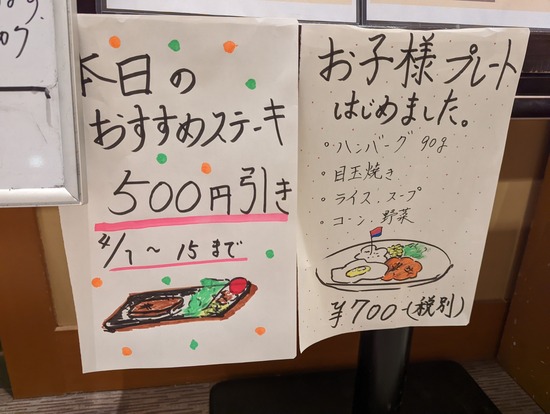 本日の
おすすめステーキ
500円引き
4/1〜15まで
お子様プレート
はじめました。
・ハンバーグ 90g
・目玉焼き
・ライス・スープ
・コーン・野菜
¥700-(税別)